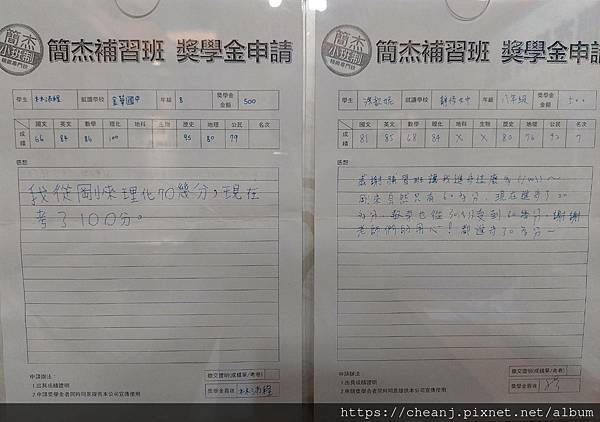 簡杰
小班制
簡杰補習班 獎學金申請
學生 就讀學校 金華國中 年級 8 獎學金金額 500
國文 英文 數學 理化 地科 生物 歷史 地理 公民 名次
成績 66 84 86 100 95 80 79
感想
我從剛來理化70幾分,現在
考了100分。
申請辦法:
1.出具成績證明
2.申請獎學金者同時同意提供本公司宣傳使用
繳交證明(成績單/考卷)
獎學金簽收
簡杰
小班制
簡杰補習班 獎學金申請
學生 就讀學校 年級 八年級 獎學金金額 500
國文 英文 數學 理化 地科 生物 歷史 地理 公民 名次
成績 81 85 68 84 X X 80 76 92 7
感想
感謝補習班讓我進步這麼多
剛來自然只有60多分,現在進步了20
多分,數學也從30幾分變到60幾分,謝謝
老師們的用心!都進步30多分~
申請辦法:
1.出具成績證明
2.申請獎學金者同時同意提供本公司宣傳使用
繳交證明(成績單/考卷)
獎學金簽收
https://cheanj.pixnet.net/album